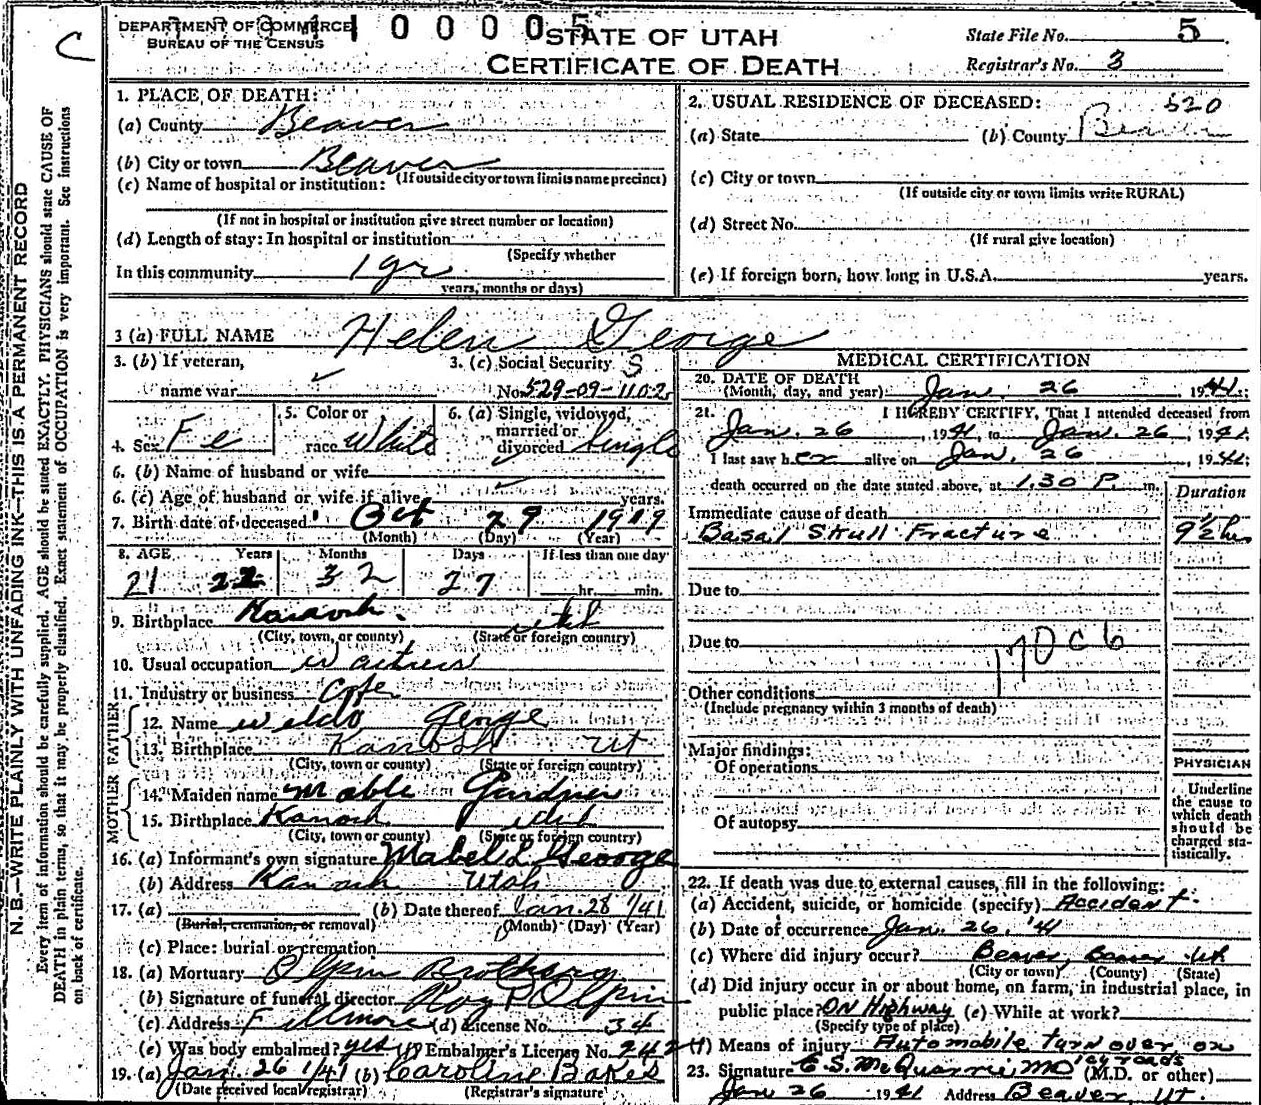 DEPARTMENT OF COMMERCE
BUREAU OF THE CENSUS
4100005
STATE OF UTAH
CERTIFICATE OF DEATH
State File No. 5
Registrar's No. 3
C
N. B.—WRITE PLAINLY WITH UNFADING INK—THIS IS A PERMANENT RECORD
Every item of information should be carefully supplied. AGE should be stated EXACTLY. PHYSICIANS should state CAUSE OF
DEATH in plain terms, so that it may be properly classified. Exact statement of OCCUPATION is very important. See instructions
on back of certificate.
1. PLACE OF DEATH:
(a) County Beaver
(b) City or town Beaver
(If outside city or town limits name precinct)
(c) Name of hospital or institution:
(If not in hospital or institution give street number or location)
(d) Length of stay: In hospital or institution
(Specify whether
In this community 1 yr
years, months or days)
2. USUAL RESIDENCE OF DECEASED: 520
(a) State (b) County Beaver
(c) City or town
(If outside city or town limits write RURAL)
(d) Street No.
(If rural give location)
(e) If foreign born, how long in U.S.A. years.
3 (a) FULL NAME Helen George
3. (b) If veteran,
name war
3. (c) Social Security S
No. 529-09-1102
4. Sex Fe
5. Color or
race White
6. (a) Single, widowed,
married or
divorced Single
6. (b) Name of husband or wife
6. (c) Age of husband or wife if alive years.
7. Birth date of deceased Oct 29 1919
(Month) (Day) (Year)
8. AGE Years Months Days If less than one day
21 22 3 2 27 hr. min.
9. Birthplace Kanosh. Utah
(City, town, or county) (State or foreign country)
10. Usual occupation Waitress
11. Industry or business Cafe
FATHER
12. Name Weldo George
13. Birthplace Kanosh Ut
(City, town or county) (State or foreign country)
MOTHER
14. Maiden name Mable Gardner
15. Birthplace Kanosh Utah
(City, town or county) (State or foreign country)
16. (a) Informant's own signature Mabel L George
(b) Address Kanosh Utah
17. (a) (b) Date thereof Jan. 28 1/41
(Burial, cremation, or removal) (Month) (Day) (Year)
(c) Place: burial or cremation
18. (a) Mortuary Olpin Brothers
(b) Signature of funeral director Roy P Olpin
(c) Address Fillmore (d) License No. 34
(e) Was body embalmed? yes Embalmer's License No. 242
19. (a) Jan. 26 1/41 (b) Caroline Bakes
(Date received local registrar) (Registrar's signature)
MEDICAL CERTIFICATION
20. DATE OF DEATH
(Month, day, and year) Jan. 26 1941
21. I HEREBY CERTIFY, That I attended deceased from
Jan. 26, 1941, to Jan. 26, 1941
I last saw her alive on Jan. 26, 1941;
death occurred on the date stated above, at 1.30 P. m.
Duration
Immediate cause of death
Basal Skull Fracture 9½ hrs
Due to
Due to
170 c 6
Other conditions
(Include pregnancy within 3 months of death)
Major findings:
Of operations
Of autopsy
PHYSICIAN
Underline
the cause to
which death
should be
charged sta-
tistically.
22. If death was due to external causes, fill in the following:
(a) Accident, suicide, or homicide (specify) Accident.
(b) Date of occurrence Jan. 26, '41
(c) Where did injury occur? Beaver, Beaver Ut
(City or town) (County) (State)
(d) Did injury occur in or about home, on farm, in industrial place, in
public place? On Highway (e) While at work?
(Specify type of place)
(f) Means of injury Automobile turn over on
icy roads
23. Signature E. S. McQuarrie MD (M.D. or other)
Jan 26 1941 Address Beaver, Ut.